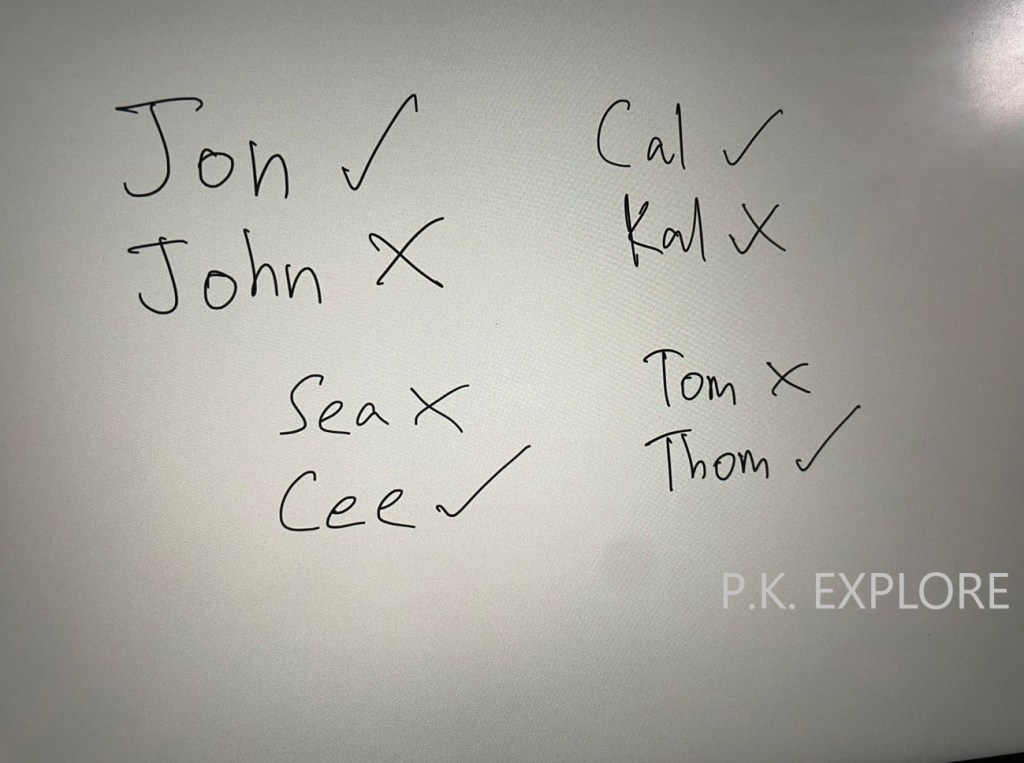 Jon ✓
John X
Cal ✓
Kal X
Sea X
Cee ✓
Tom X
Thom ✓
P.K. EXPLORE